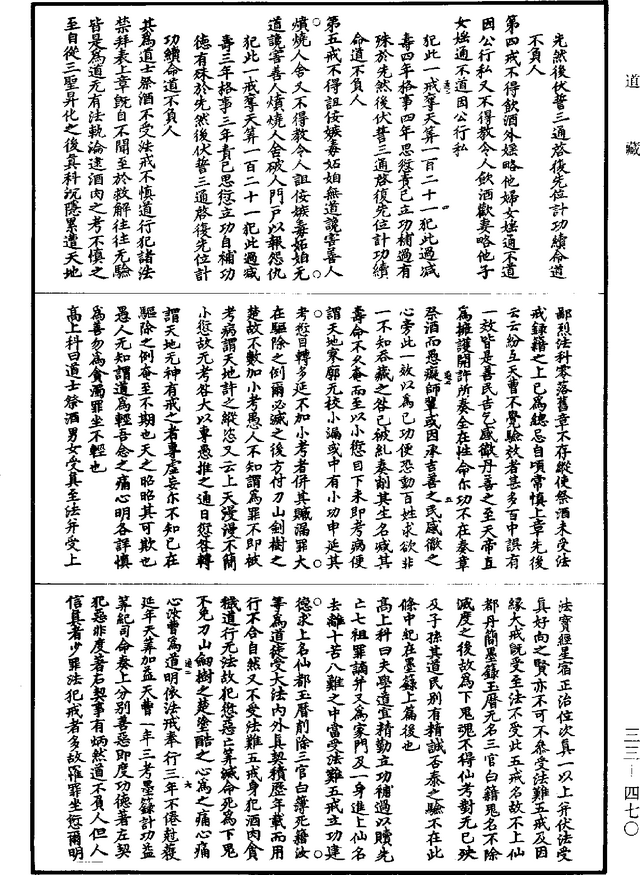 道藏
先然後伏誓三通啓復先位計功續命道
不負人
第四戒不得飲酒外婬略他婦女婬通不道
因公行私又不得教令人飲酒歡妻略他子
女婬通不道因公行私
犯此一戒奪天筭一百二十一犯此過減
壽四年格事四年思愆責己立功補過有
殊於先然後伏誓三通啓復先位計功續
命道不負人
第五戒不得詛佞嫉毒妬妲無道讒害善人
燌燒人舍又不得教令人詛佞嫉毒妬妲无
道讒害善人燌燒人舍破人門戶以報怨仇
犯此一戒奪天筭一百二十一犯此過減
壽三年格事三年責己思愆立功自補功
德有殊於先然後伏誓三通啓復先位計
功續命道不負人
其為道士祭酒不受法戒不慎道行犯諸法
禁拜表上章既自不聞至於救解往往无驗
皆是為道无有法軌論逮酒肉之考不慎之
至自從三聖昇化之後真科沉隱累遭天地
鄙烈法科零落舊章不存縱使祭酒未受法
戒錄籍之上已為總忌自頃常慎上章先後
云云紛互天曹不覺驗效者甚多百中誤有
一效皆是善民吉乞感徹丹善之至天帝直
為擁護開許所奏全在性命尔功不在奏章
祭酒而愚癡師輩或因承吉善之民感徹之
心旁此一效以為己功便恐動百姓求欲非
一不知吞藏之咎已被糺奏削其生名減其
壽命不久奄而至以小愆目下未即考病便
謂天地寥廓无校小漏或中有小功申延其
考愆日轉多延不加小考者併其贓漏罪大
在驅除之例爾必滅之後方付刀山劍樹之
楚故不數加小考愚人不知謂為罪不即柩
考病謂天地計之縱恣又云上天漫漫不簡
小愆故元考咎大以專愚推之通日愆咎轉
謂天地无神有戒之者專虛妄尔不知已在
驅除之例奄至不期也天之昭昭其可欺也
愚人无知謂道為輕吾念之痛心明各詳慎
為善勿為貪濁罪坐不輕也
高上科曰道士祭酒男女受真至法并受上
法寶經星宿正治位次真一以上并伏法受
真好尚之賢亦不可不參受法難五戒及因
緣大戒既受至法不受此五戒名故不上仙
都丹簡墨錄玉曆元名三官白籍鬼名不除
滅度之後故為下鬼魂不得仙考對无已殃
及子孫其道民別有精誠否泰之驗不在此
條中紀在墨錄上篇後也
高上科曰夫學道宜精勤立功補過以贖先
亡七祖罪謫并又為家門及一身進上仙名
去離十苦八難之中當受法難五戒立功建
德求上名仙都玉曆削除三官白簿死籍汝
等為道徒受大法內外具契積歷年載而用
行不合自然又不受法難五戒身犯酒肉貪
穢道行无法故犯愆惡亡筭減命死為下鬼
不免刀山劍樹之楚塗酷之心為之痛心痛
心汝曹為道明依法戒奉行三年不倦愆薇
延年天筭加益天曹一年三考墨錄計功益
筭紀司命奏上分別善惡即度功德著左契
犯惡非度著右契事有炳然道不負人但人
信真者少罪法犯戒者多故羅罪坐愆爾明
三三一四七〇